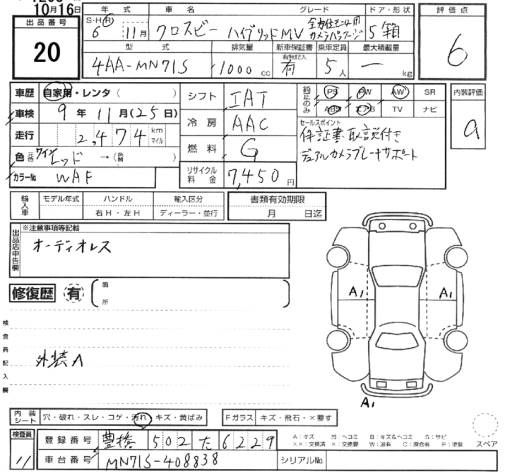 10月16日
出品番号
20
年式 車名 グレード ドア・形状
S・H・R
6年 11月 クロスビー ハイブリッドMV 全方位モニター用カメラパッケージ 5箱
型式 排気量 新車保証書 乗車定員 最大積載量
4AA-MN71S 1000cc 有 5人 ー kg
評価点
6
車歴 自家用・レンタ
車検 9年 11月(25日)
走行 2,474 km マイル
色 レッド →
カラーNo WAF
シフト IAT
冷房 AAC
燃料 G
リサイクル料金 7,450円
PS PW AW SR
TV ナビ
セールスポイント
保証書 取説付き
デュアルカメラブレーキサポート
内装評価
輸入車 モデル年式 ハンドル 輸入区分
右H・左H ディーラー・並行
書類有効期限
月 日迄
出品店申告欄 ※注意事項等記載
オーディオレス
修復歴 有 箇所
検査員記入欄
外装A
A1 A1
A1
内装シート 穴・破れ・スレ・コゲ・汚れ・キズ・黄ばみ
Fガラス キズ・飛石・×要す
検査員
11
登録番号 豊橋 502 た 6229
車台番号 MN71S-408838
シリアルNo.
スペア